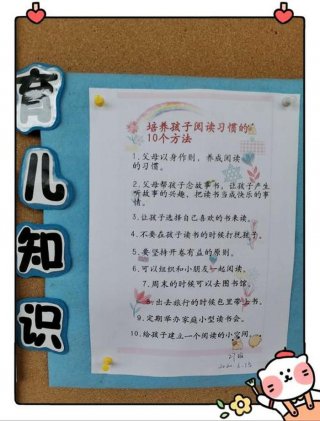 育儿知识
培养孩子阅读习惯的
10个方法
1.父母以身作则，养成阅读
的习惯。
2.父母帮孩子念故事书，让孩子产生
听故事的兴趣，把读书当成快乐的事
情。
3.让孩子选择自己喜欢的书来读。
4.不要在孩子读书的时候打扰孩子。
5.要坚持开卷有益的原则。
6.可以组织和小朋友一起阅读。
7.周末的时候可以去图书馆。
8.出去旅行的时候包里带上书。
9.定期举办家庭小型读书会。
10.给孩子建立一个阅读的小空间。